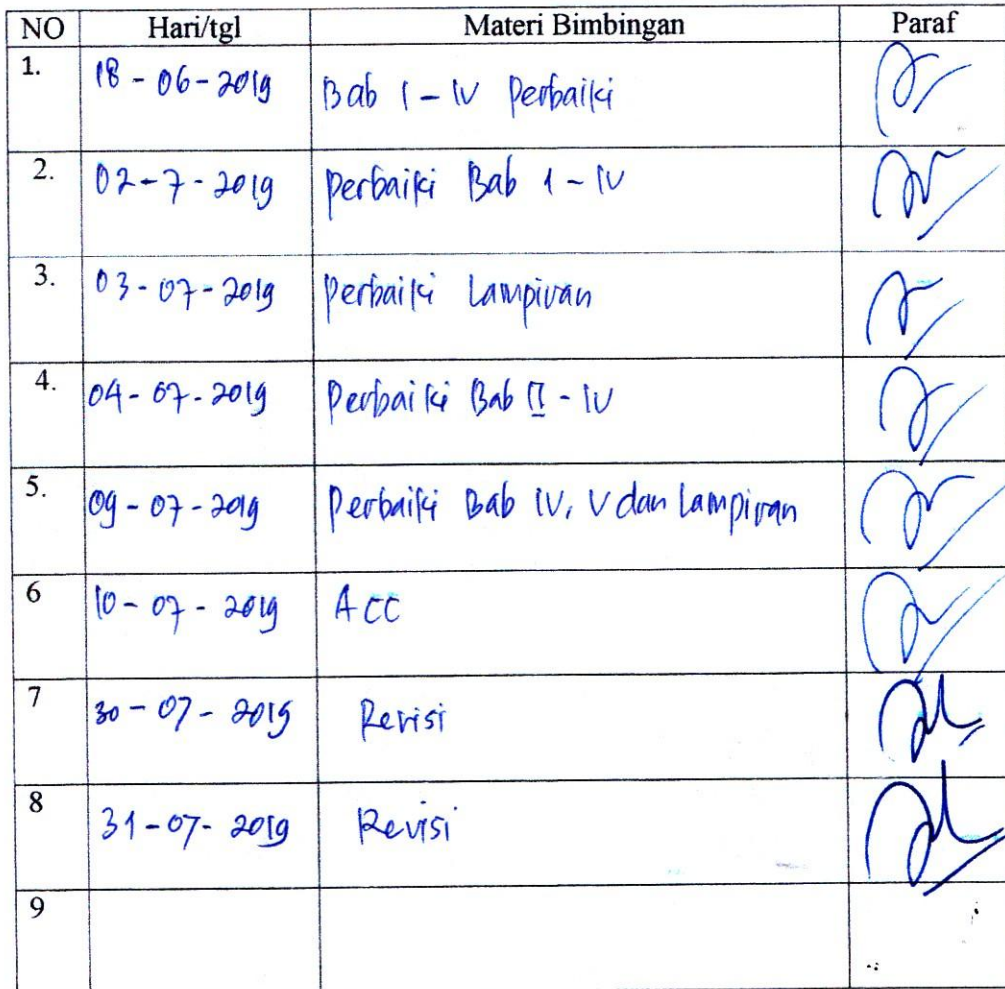 NO Hari/tgl Materi Bimbingan Paraf
1. 18 - 06 - 2019 Bab I - IV Perbaiki
2. 02 - 7 - 2019 Perbaiki Bab 1 - IV
3. 03 - 07 - 2019 Perbaiki Lampiran
4. 04 - 07 - 2019 Perbaiki Bab II - IV
5. 09 - 07 - 2019 Perbaiki Bab IV, V dan Lampiran
6 10 - 07 - 2019 ACC
7 30 - 07 - 2019 Revisi
8 31 - 07 - 2019 Revisi
9